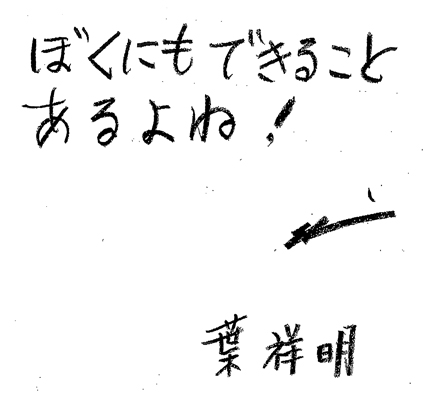 ぼくにもできること
あるよね！
葉祥明